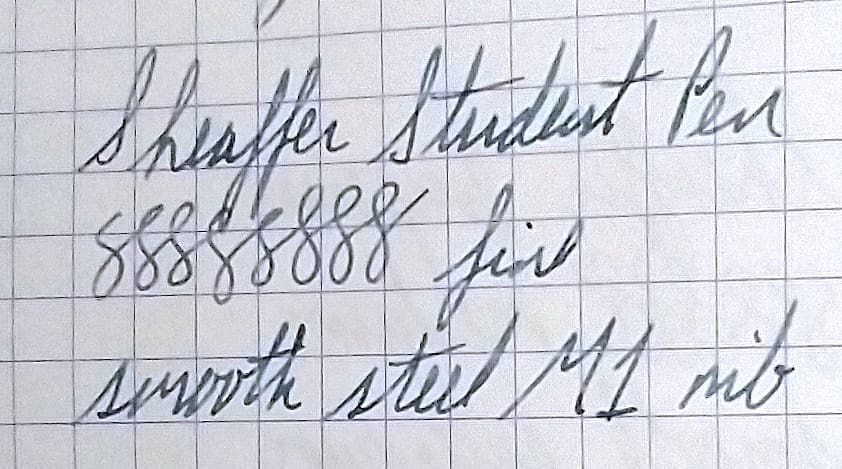 Sheaffer Student Pen
888888888 fine
smooth steel M1 nib